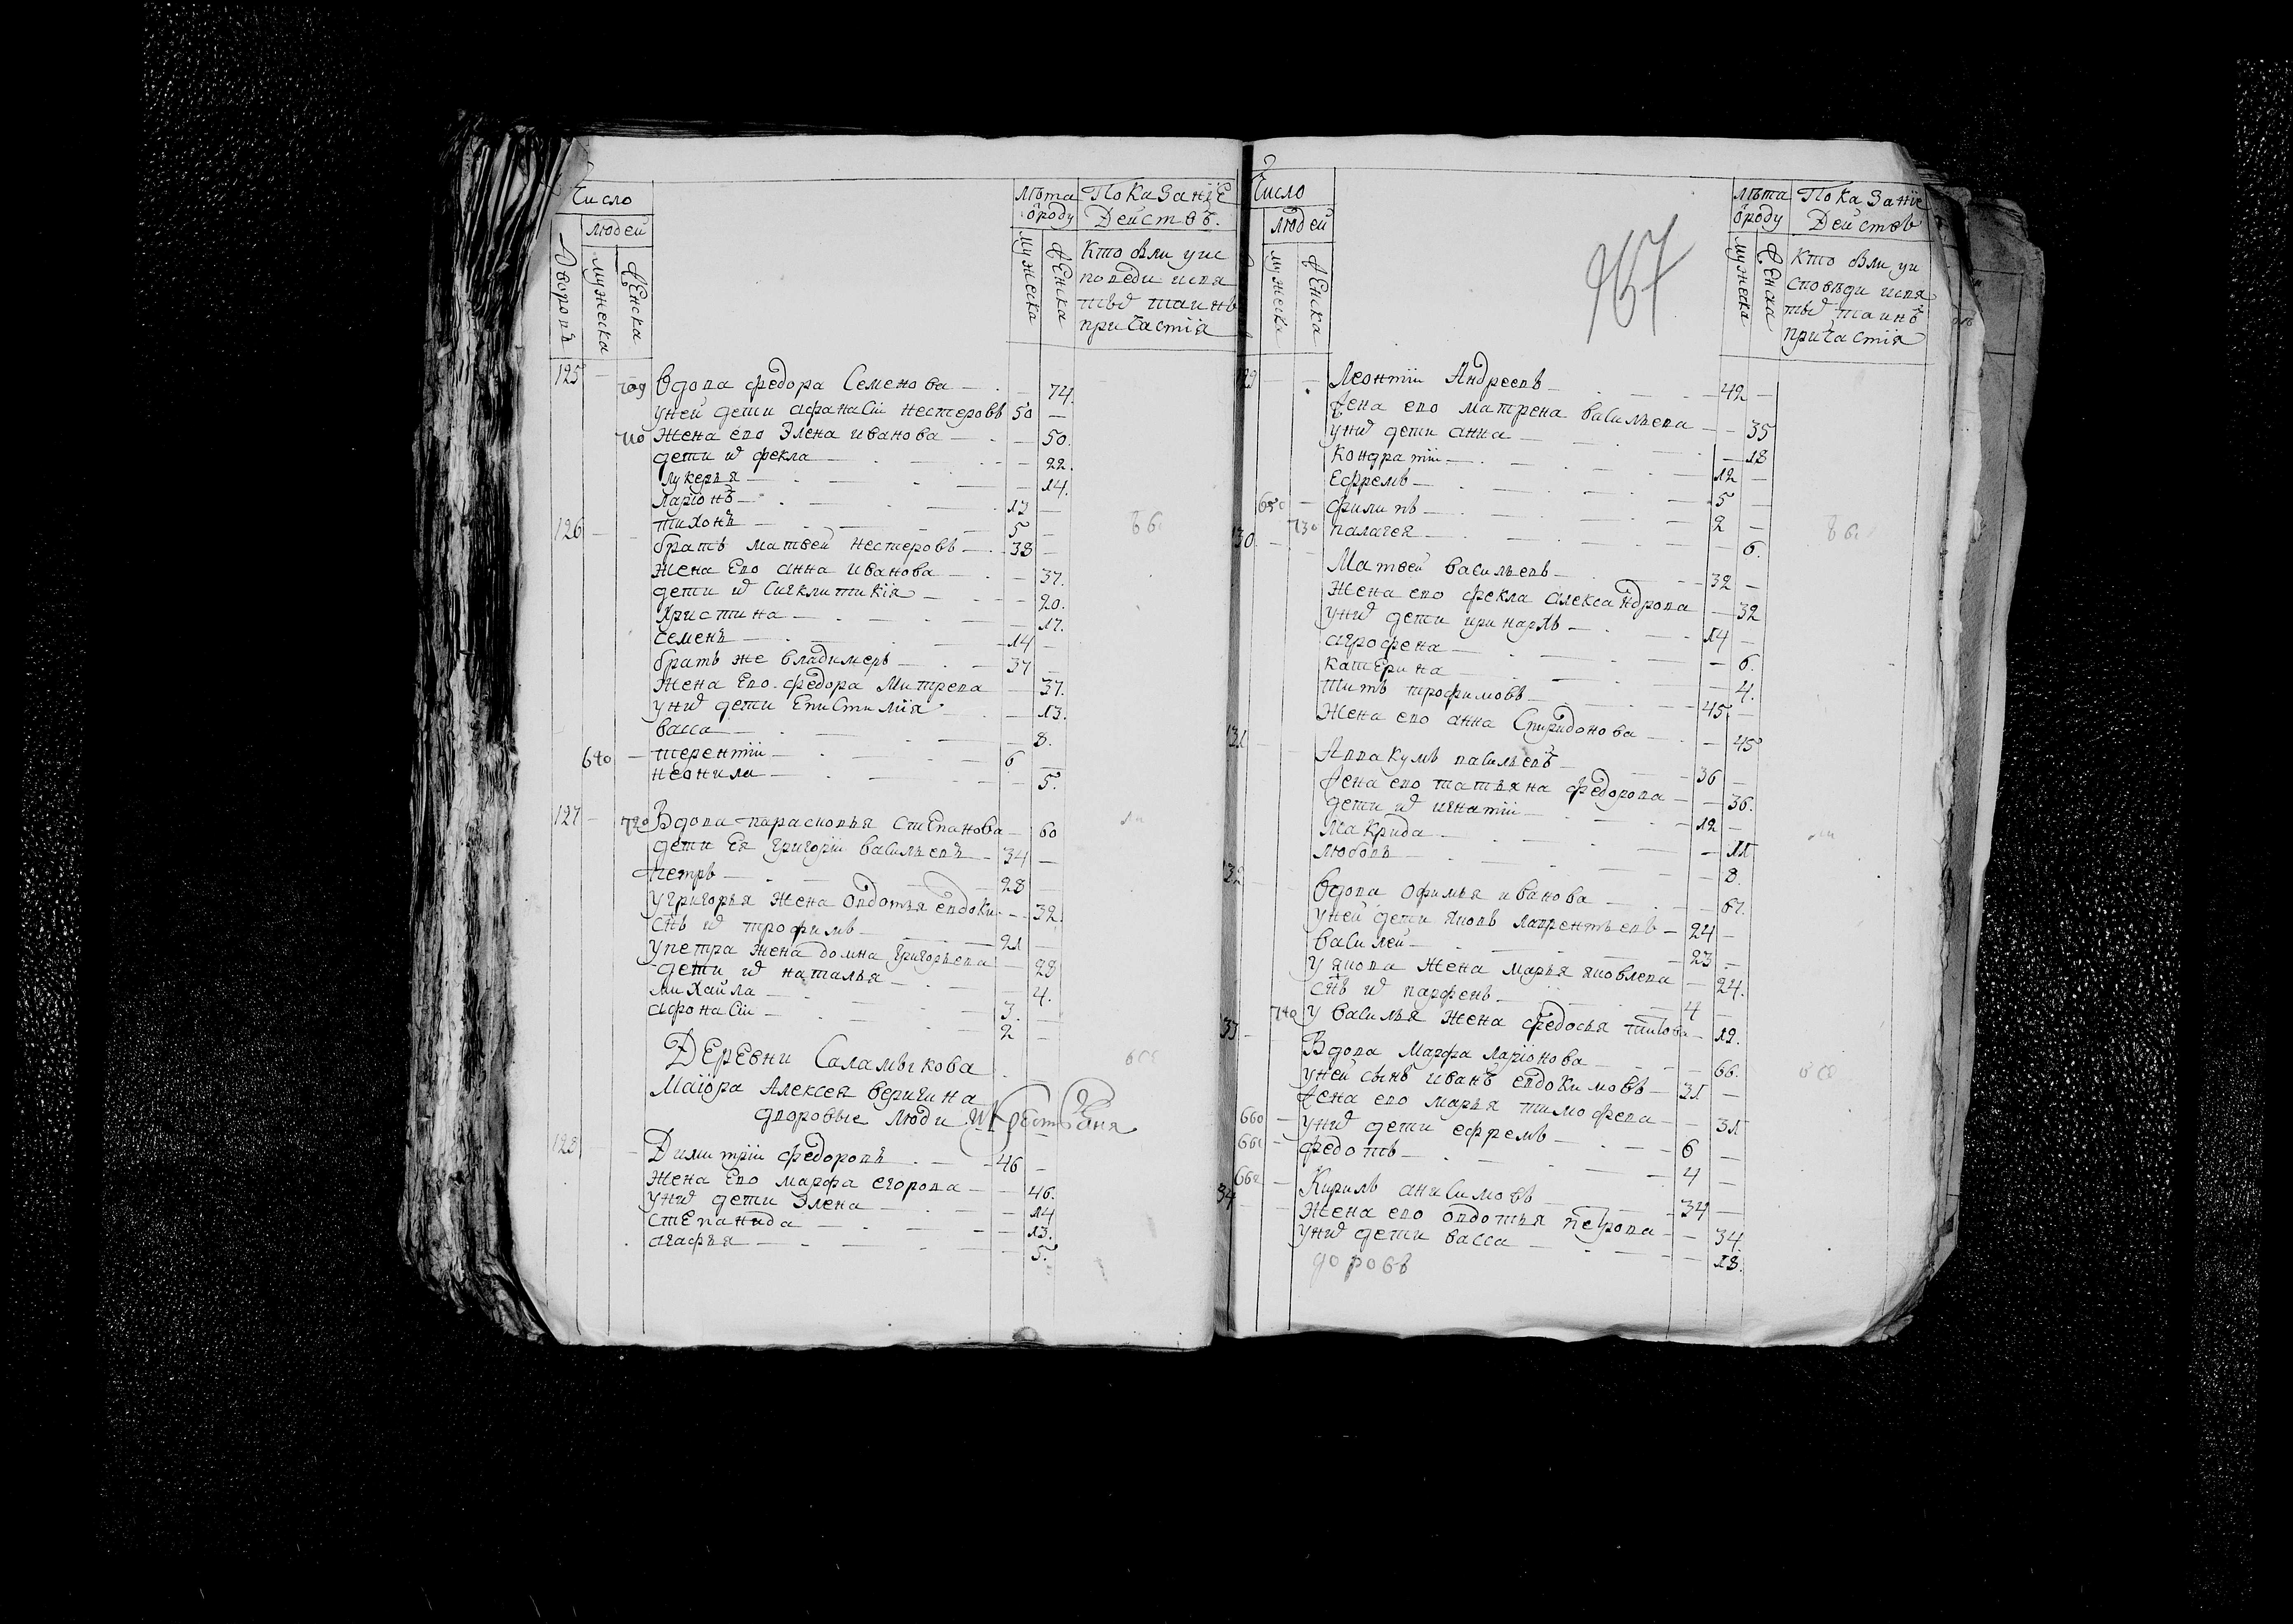 Число
людей
Дворовъ
мужеска
женска
лѣта ѿроду
мужеска
женска
ПоКаЗанїЕ
Действъ.
Кто были уис
поведи исвя
тыѡ таинъ
причастїя
125 — 709 Вдова федора Семенова — 74.
уней дети афанасiи нестеровъ 50 —
710 Жена ево Элена иванова — 50.
дети иѡ фекла — 22.
лукерья — 14.
ларiонъ — 13 —
тихонъ — 5 —
126 — братъ матвеи нестеровъ — 38 —
Жена Ево анна иванова — 37.
дети иѡ Сигклитикiя — 20.
христина — 17.
семенъ — 14 —
братъ же владимеръ — 37 —
Жена Ево федора Митрева — 37.
униѡ дети Епистимiя — 13.
васса — 8.
640 — терентiи — 6 —
неонила — 5.
127 — 720 Вдова парасковья Степанова — 60
дети Ея григорiи васильевъ — 34 —
петръ — 28 —
угригорья жена овдотья евдоки — 32.
снъ иѡ трофимъ — 21 —
упетра жена домна григорьева — 28
дети иѡ наталья — 4.
михаила — 3. —
афонасiи — 2 —
ДЕрЕвни Саламыкова
Маiора Алексея веригина
дворовые люди и крестьяня
128 — Димитрiи федоровъ — 46 —
Жена Ево марфа егорова — 46.
униѡ дети Элена — 14
стЕпанида — 13.
агафья — 5.
Число
людей
мужеска
женска
967
лѣта ѿроду
мужеска
женска
ПоКаЗанїе
Действъ
Кто были уи
сповѣди исвя
тыѡ таинъ
причастїя
129 — Леонтiи Андреевъ — 42 —
жена ево матрена васильева — 35
униѡ дети анна — 18
кондратiи — 12 —
Ефремъ — 5 —
650 — филипъ — 2 —
730 палагея — 6.
130 — Матвеи васильевъ — 32 —
жена ево фекла александрова — 32
униѡ дети иринархъ — 14 —
агрофена — 6.
катерина — 4.
титъ трофимовъ — 45 —
Жена ево анна Спиридонова — 45
131 — Аввакумъ васильевъ — 36 —
жена ево татьяна федорова — 36.
дети иѡ игнатiи — 12 —
макрида — 11
любовь — 8.
132 Вдова офимья иванова — 67.
уней дети яковъ лаврентьевъ — 24 —
василей — 23 —
у якова жена марья яковлева — 24.
снъ иѡ парфенъ — 4 —
740 у василья жена федосья титова — 19.
133 — Вдова Марфа ларiонова — 66.
уней сынъ иванъ евдокимовъ — 31 —
жена ево марья тимофева — 31
660 — униѡ дети ефремъ — 6 —
661 — федотъ — 4 —
662 — 134 Кирилъ анисимовъ — 34 —
жена ево овдотья петрова — 34.
униѡ дети васса — 18.
доровъ